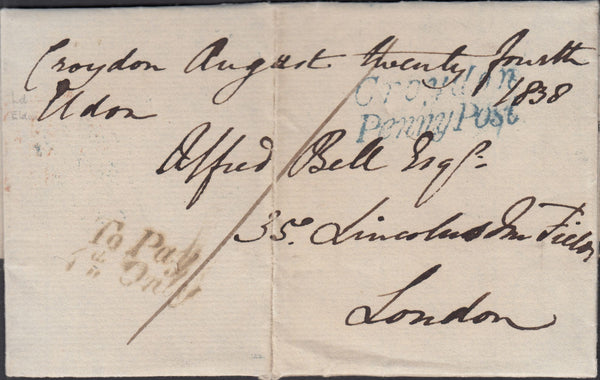 Croydon August twenty fourth
1838
Croydon
Penny Post
Eldon
Alfred Bell Esqr.
35. Lincolns Inn Fields
To Pay
Only
London